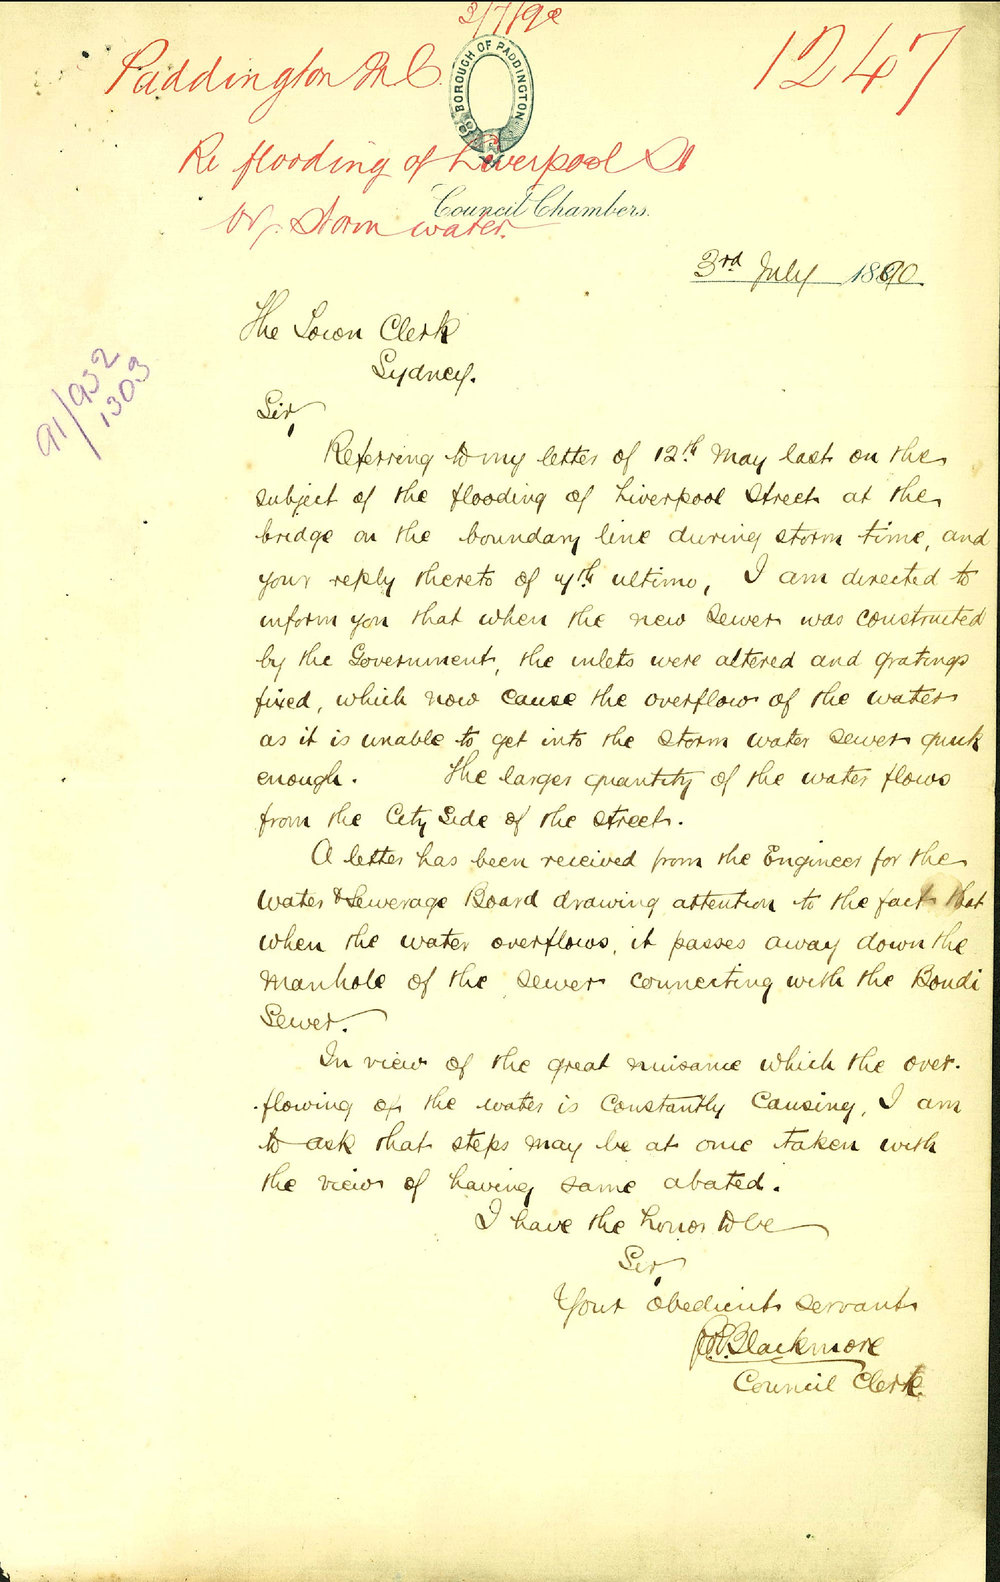 3/7/90
Paddington M.C.
1247
BOROUGH OF PADDINGTON
Re flooding of Liverpool St
by Storm water.
Council Chambers.
3rd July 1890.
The Town Clerk
Sydney.
91/932
1303
Sir,
Referring to my letter of 12th May last on the
subject of the flooding of Liverpool Street at the
bridge on the boundary line during storm time, and
your reply thereto of 4th ultimo, I am directed to
inform you that when the new Sewer was constructed
by the Government, the inlets were altered and gratings
fixed, which now cause the overflow of the water
as it is unable to get into the storm water sewer quick
enough. The larger quantity of the water flows
from the City Side of the street.
A letter has been received from the Engineer for the
Water & Sewerage Board drawing attention to the fact that
when the water overflows, it passes away down the
manhole of the sewer connecting with the Bondi
Sewer.
In view of the great nuisance which the over-
-flowing of the water is constantly causing, I am
to ask that steps may be at once taken with
the view of having same abated.
I have the honor to be
Sir,
Your obedient servant
Blackmore
Council Clerk.